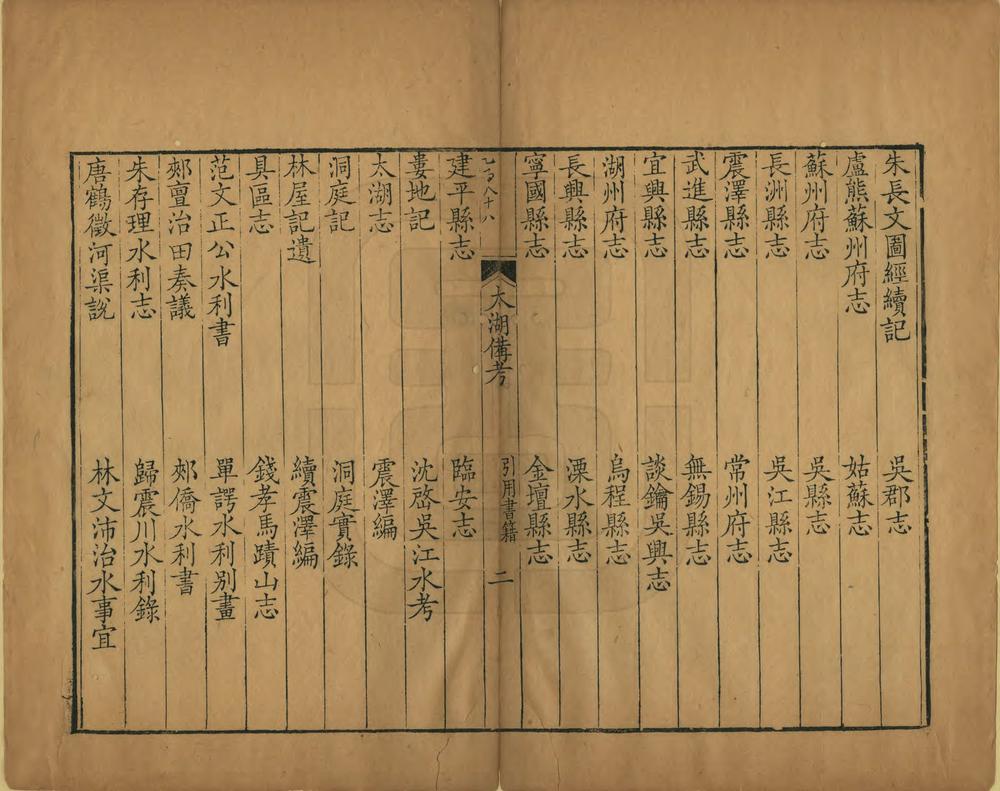 朱長文圖經續記　吳郡志
盧熊蘇州府志　姑蘇志
蘇州府志　吳縣志
長洲縣志　吳江縣志
震澤縣志　常州府志
武進縣志　無錫縣志
宜興縣志　談鑰吳興志
湖州府志　烏程縣志
長興縣志　溧水縣志
寧國縣志　金壇縣志
太湖備考　引用書籍　二
建平縣志　臨安志
婁地記　沈啓吳江水考
太湖志　震澤編
洞庭記　洞庭實錄
林屋記遺　續震澤編
具區志　錢孝馬蹟山志
范文正公水利書　單諤水利別畫
郟亶治田奏議　郟僑水利書
朱存理水利志　歸震川水利錄
唐鶴徵河渠說　林文沛治水事宜